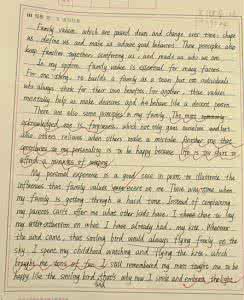 Family values, which are passed down and change over time, shape
us, define us and make us advance good behaviors. These principles also
keep families together, comforting us, and made us who we are.
In my opinion, family value is essential for many factors.
For one thing, to builds a family as a team but not individuals
who always think for their own benefits. For another, these values
mentally help us make decisions and to behave like a decent person.
There are also some principles in my family. The most commonly
acknowledged one is forgiveness, which not only goes ourselves and
also others relieve when others make a mistake. Another
in my personality is to be happy because life is too short to
afford a minutes of
My personal experience is a good case in point to illustrate the
influences that family values on me. There was time when
my family is getting through a hard time. Instead of complaining
my parents can't offer me what other kids have, I chose to lay
my on what I have already had, my kite. Whatever
the wind came, that smiling bird would always flying freely on the
sky. I spent my childhood watching and flying the kite, which
brought me tons of fun. I still remembered my mom taught me to be
happy like the smiling bird. That's why I smile and embrace the light